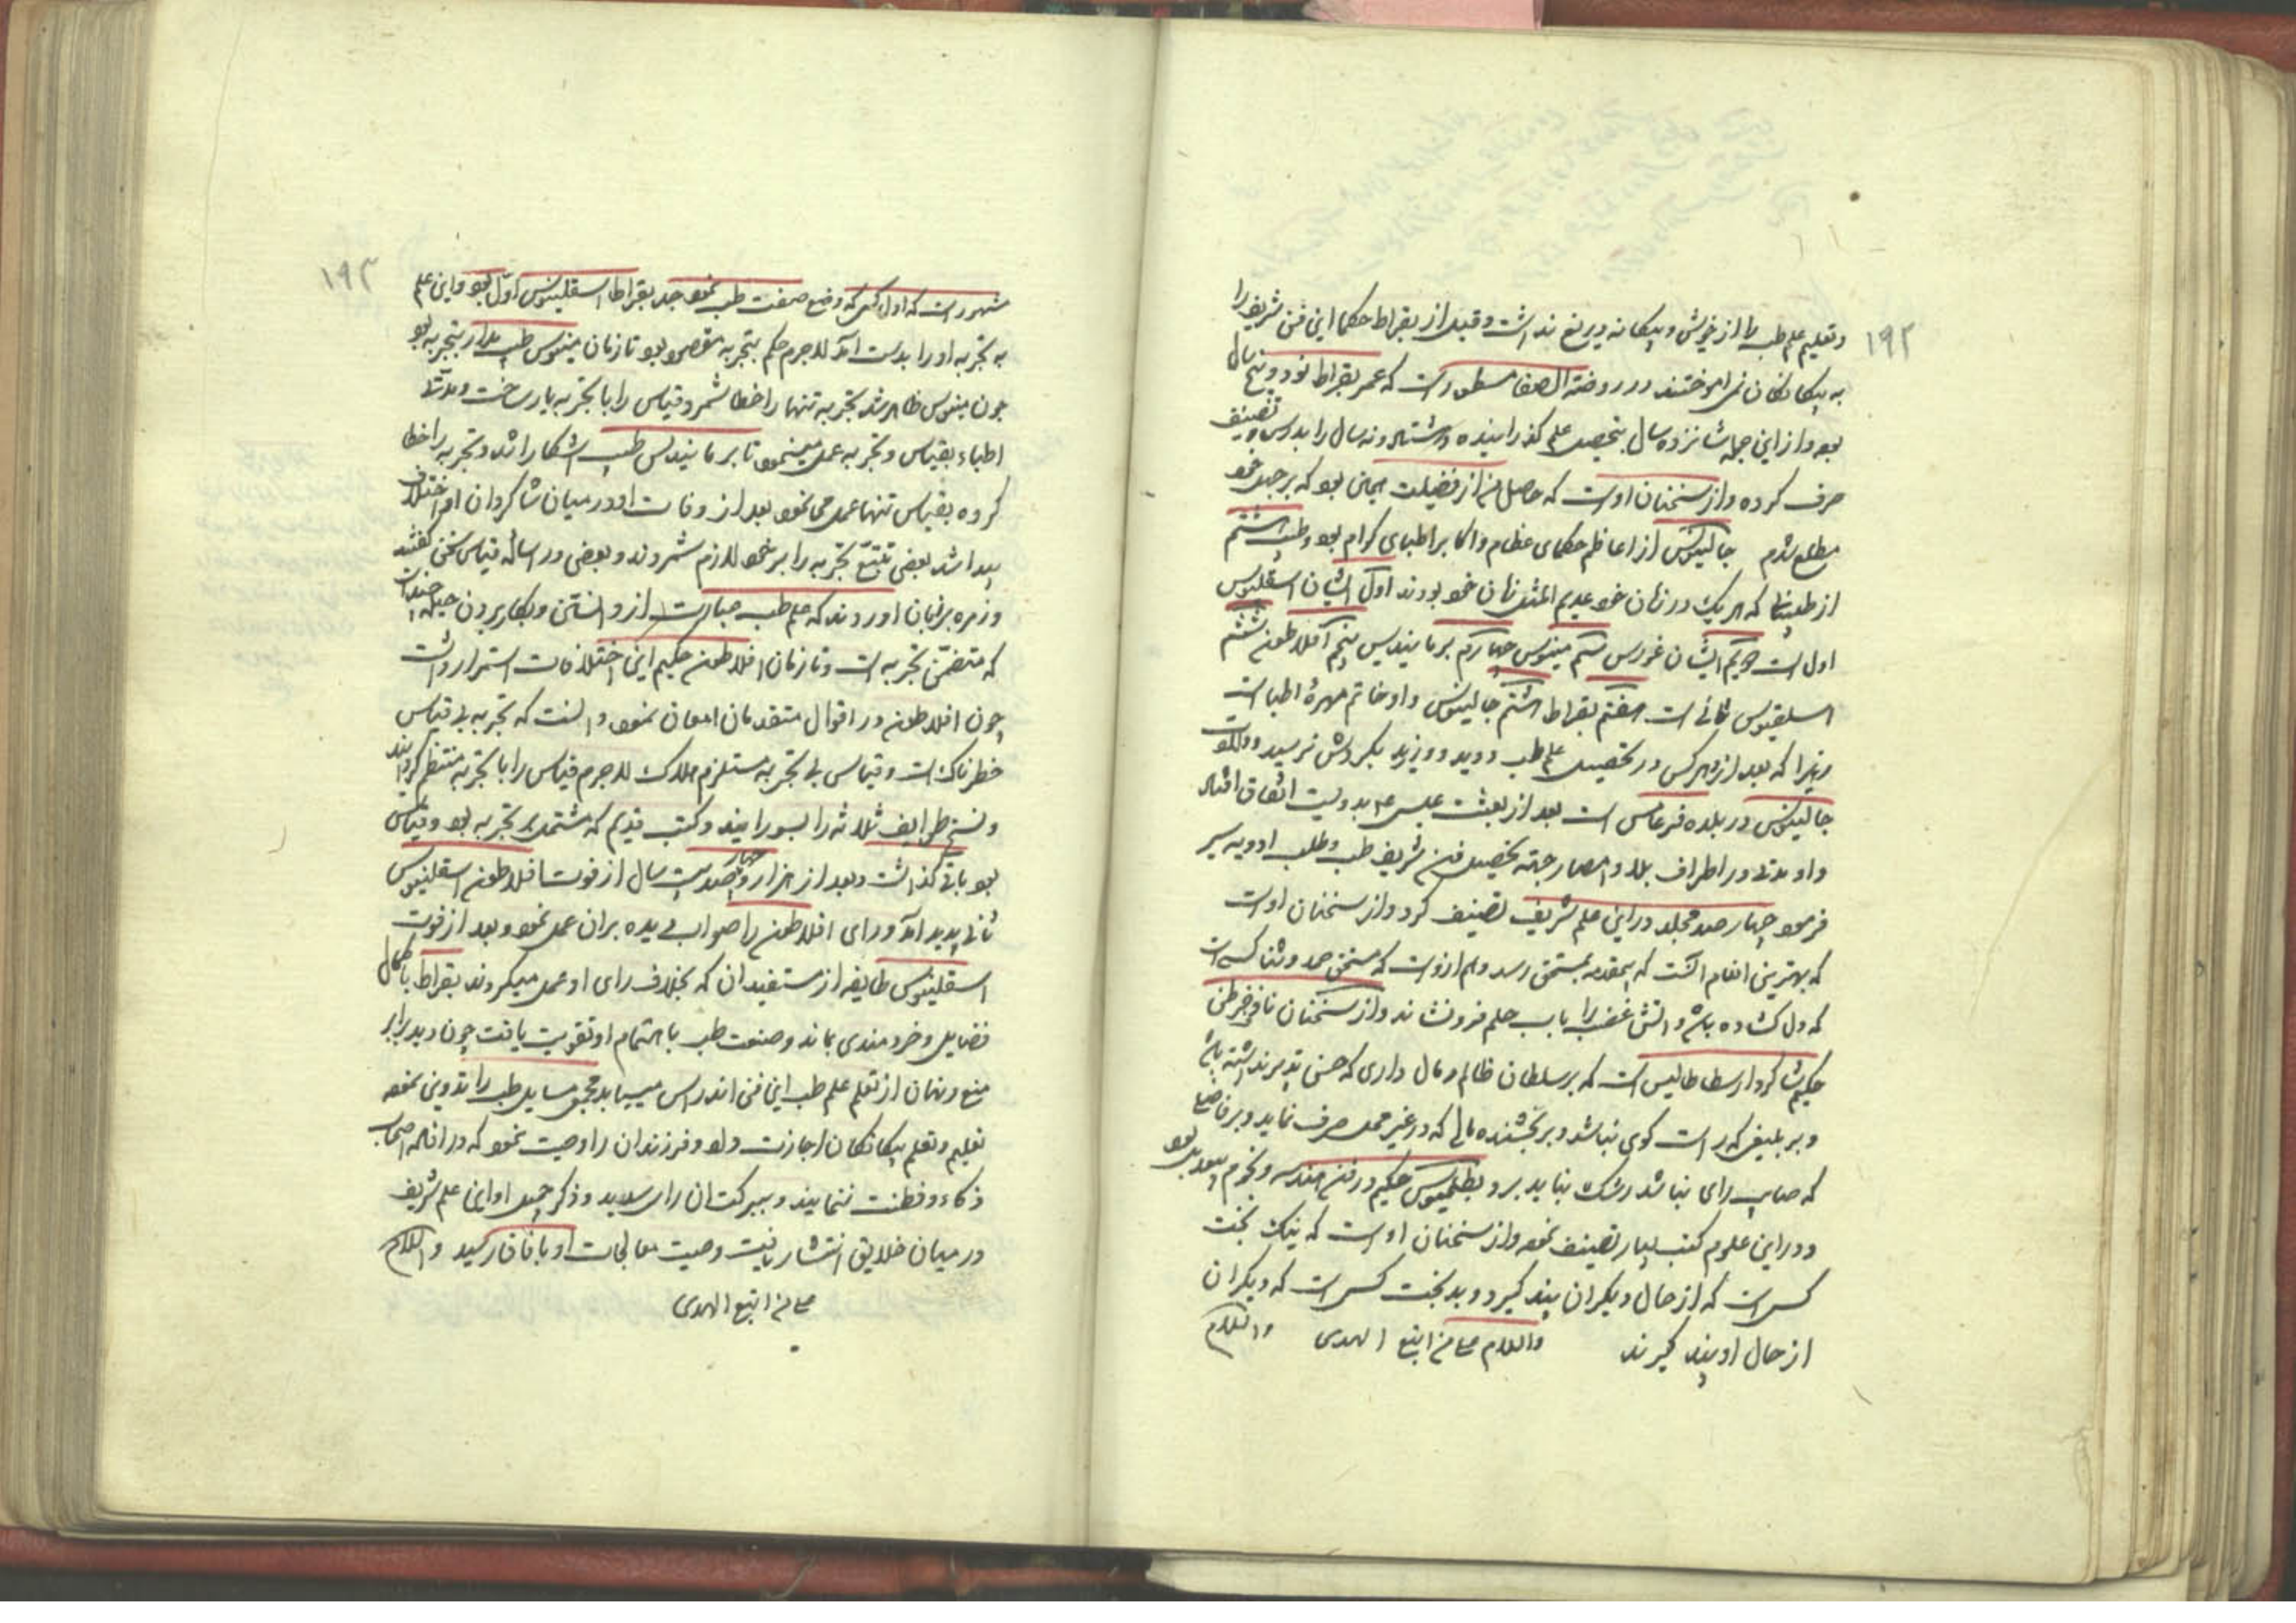 ١٩٢
و تعلیم علم طب را از خویش و بیکانه دریغ نداشت و قبل از بقراط حکما این فن شریف را
به بیکانکان نمی اموختند و در روضة الصفا مسطور است که عمر بقراط نود و پنج سال
بود و از این جمله شانزده سال بتحصیل علم کذرانیده و هشتاد و نه سال را بدرس و تصنیف
صرف کرده و از سخنان اوست که حاصل من از فضیلت همان بود که بر جهل خود
مطلع شدم جالینوس از اعاظم حکمای عظام و اکابر اطبای کرام بود و طب هشتم
از طبیبانی که هر یک در زمان خود عدیم المثل زمان خود بودند اول ایشان اسقلینوس
اول است دویم ایشان غورس سیم مینوس چهارم برمانیدیس پنجم افلاطون ششم
اسلقینوس ثانی است هفتم بقراط هشتم جالینوس و او خاتم مهرۀ اطبا است
زیرا که بعد از او هر کس در تحصیل علم طب دوید و ورزید بکردش نرسید و ولادت
جالینوس در بلده فرغامس است بعد از بعثت عیسی ع بدویست اتفاق افتاد
و او مدتی در اطراف بلاد و امصار جهة تحصیل فن شریف طب و طلب ادویه سیر
فرمود چهار صد مجلد در این علم شریف تصنیف کرد و از سخنان اوست
که بهترین انعام انست که بمقدمه بمستحق رسد و هم ازوست که مستحق حمد و ثنا کسی است
که دل کشاده باشد و اتش غضب را باب حلم فرونشاند و از سخنان
حکیم شاکرد ارسطاطالیس است که بر سلطان ظالم و مال داری که حسن تدبیر نداشته باشد
و بر بلیغی که راست کوی نباشد و بر بخشنده مالی که در غیر محل صرف نماید و بر فاضلی
که صایب رای نباشد رشک نباید برد بطلمیوس حکیم در فن هندسه و نجوم بیعدیل بود
و در این علوم کتب بسیار تصنیف نمود و از سخنان اوست که نیک بخت
کسی است که از حال دیکران پند کیرد و بدبخت کسی است که دیکران
از حال او پند کیرند والسلام علی من اتبع الهدی والسلام
١٩٣
مشهور است که اول کسی که وضع صنعت طب نمود جد بقراط اسقلینوس اول بود و این علم
به تجربه او را بدست امد لاجرم حکم بتجربه مقصور بود تا زمان مینوس طب مدار بتجربه بود
چون مینوس ظاهر شد تجربه تنها را خطا شمرد و قیاس را با تجربه یار ساخت و مدتی
اطباء بقیاس و تجربه عمل مینمود تا برمانیدس طب اشکارا شد و تجربه را خطا
کرده بقیاس تنها عمل می نمود بعد از وفات او در میان شاکردان او اختلاف
پیدا شد بعضی تتبع تجربه را بر خود لازم شمردند و بعضی در اساله قیاس سخن کفتند
و زمره بر زبان اوردند که علم طب عبارت از دانستن و بکار بردن حیله چند است
که متضمن تجربه است و تا زمان افلاطون حکیم این اختلافات استمرار داشت
چون افلاطون در اقوال متقدمان امعان نمود دانست که تجربه بی قیاس
خطرناک است و قیاس بی تجربه مستلزم هلاک لاجرم قیاس را با تجربه منتظم کردانید
و نسخ طوایف ثلاثه را بسورانید و کتب قدیم که مشتمل بر تجربه بود و قیاس
بود باقی کذاشت و بعد از هزار و چهارصد بیست سال از فوت افلاطون اسقلنیوس
ثانی پدید امد و رای افلاطون را صواب دیده بران عمل نمود و بعد از فوت
اسقلینوس طایفه از مستفیدان که بخلاف رای او عمل میکردند بقراط با کمال
فضایل و خردمندی بماند و صنعت طب با اهتمام او تقویت یافت چون دید برابر
منع و نهان از تعلم علم طب این فن اندراس مییابد مجموع مسایل طب را تدوین نمود
تعلیم و تعلم بیکانکان اجازت داد و فرزندان را وصیت نمود که در افاده اصحاب
ذکاء و فطنت ننمایند و ببرکت ان رای سدید و ذکر جمیل او این علم شریف
در میان خلایق انتشار یافت و صیت معالجات او بافاق رسید والسلام
علی من اتبع الهدی